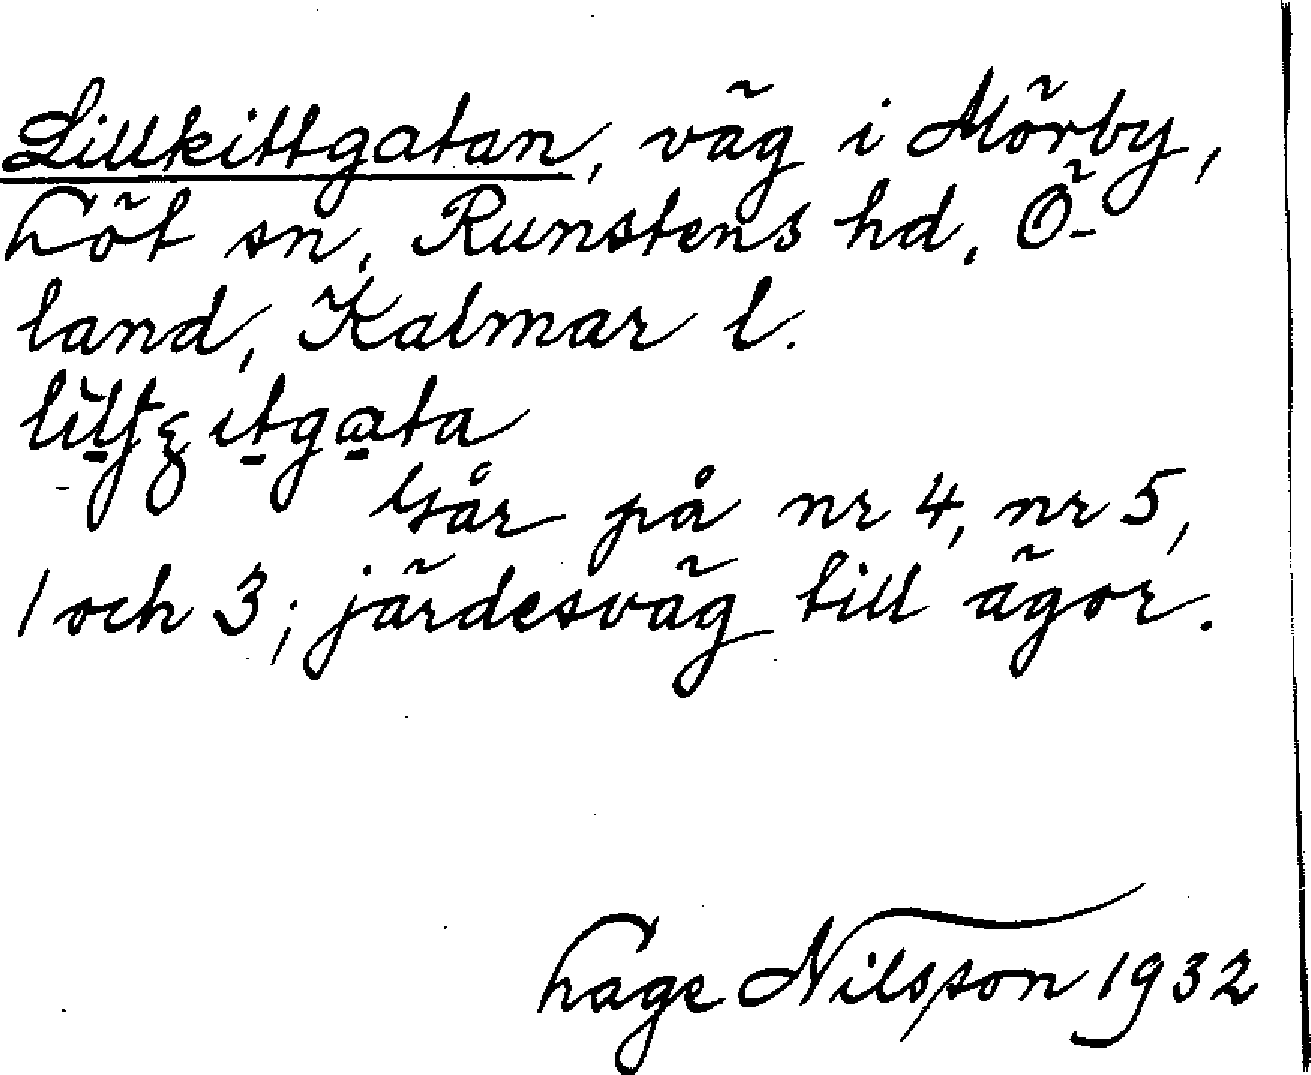 Lillkittgatan, väg i Mörby,
Löt sn, Runstens hd, Ö-
land, Kalmar l.
Går på nr 4, nr 5,
1 och 3; järdesväg till ägor.
Lage Nilsson 1932